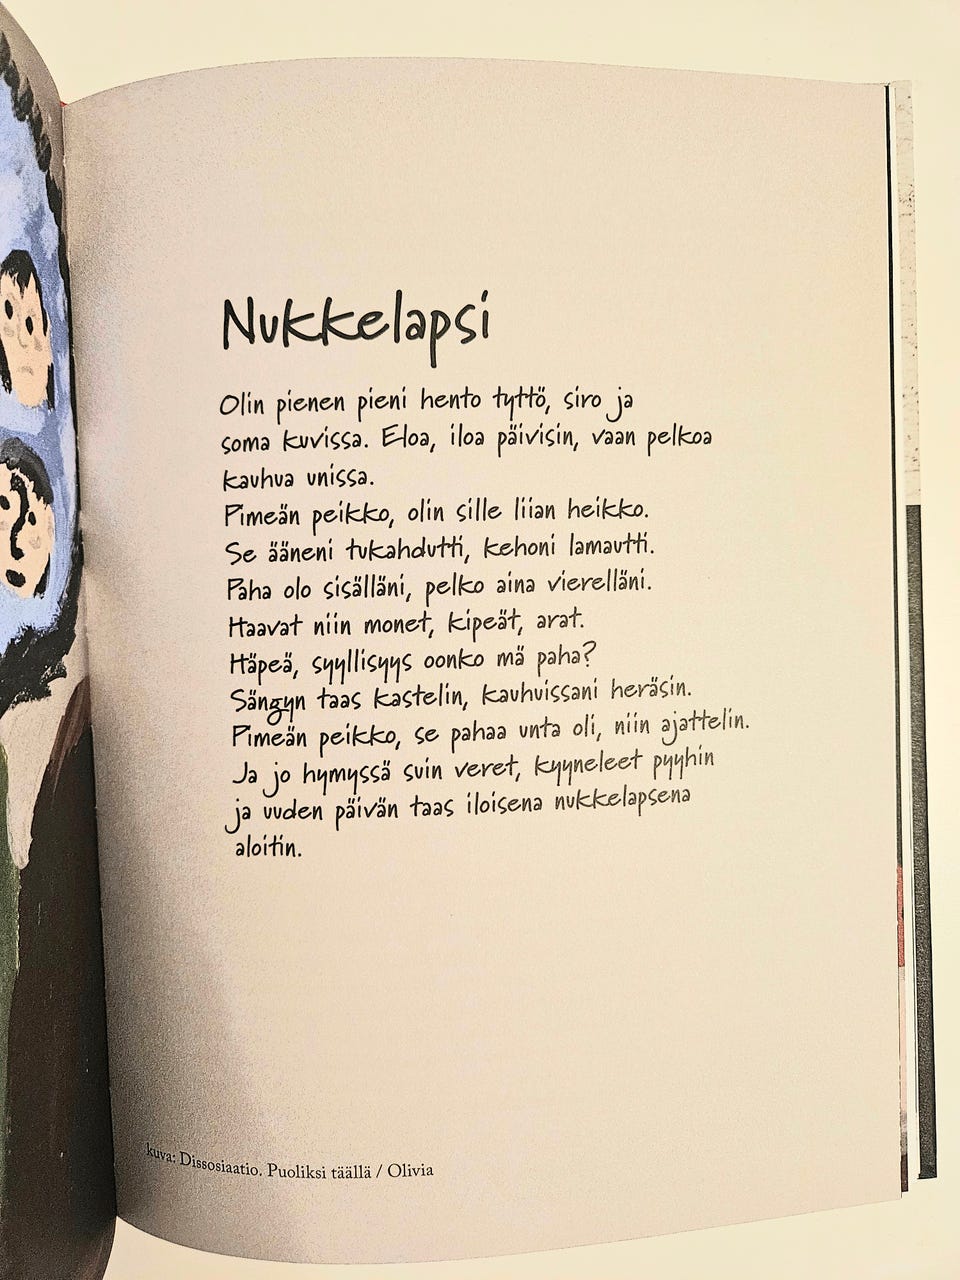 Nukkelapsi
Olin pienen pieni hento tyttö, siro ja
soma kuvissa. Eloa, iloa päivisin, vaan pelkoa
kauhua unissa.
Pimeän peikko, olin sille liian heikko.
Se ääneni tukahdutti, kehoni lamautti.
Paha olo sisälläni, pelko aina vierelläni.
Haavat niin monet, kipeät, arat.
Häpeä, syyllisyys oonko mä paha?
Sängyn taas kastelin, kauhuissani heräsin.
Pimeän peikko, se pahaa unta oli, niin ajattelin.
Ja jo hymyssä suin veret, kyyneleet pyyhin
ja uuden päivän taas iloisena nukkelapsena
aloitin.
kuva: Dissosiaatio. Puoliksi täällä / Olivia